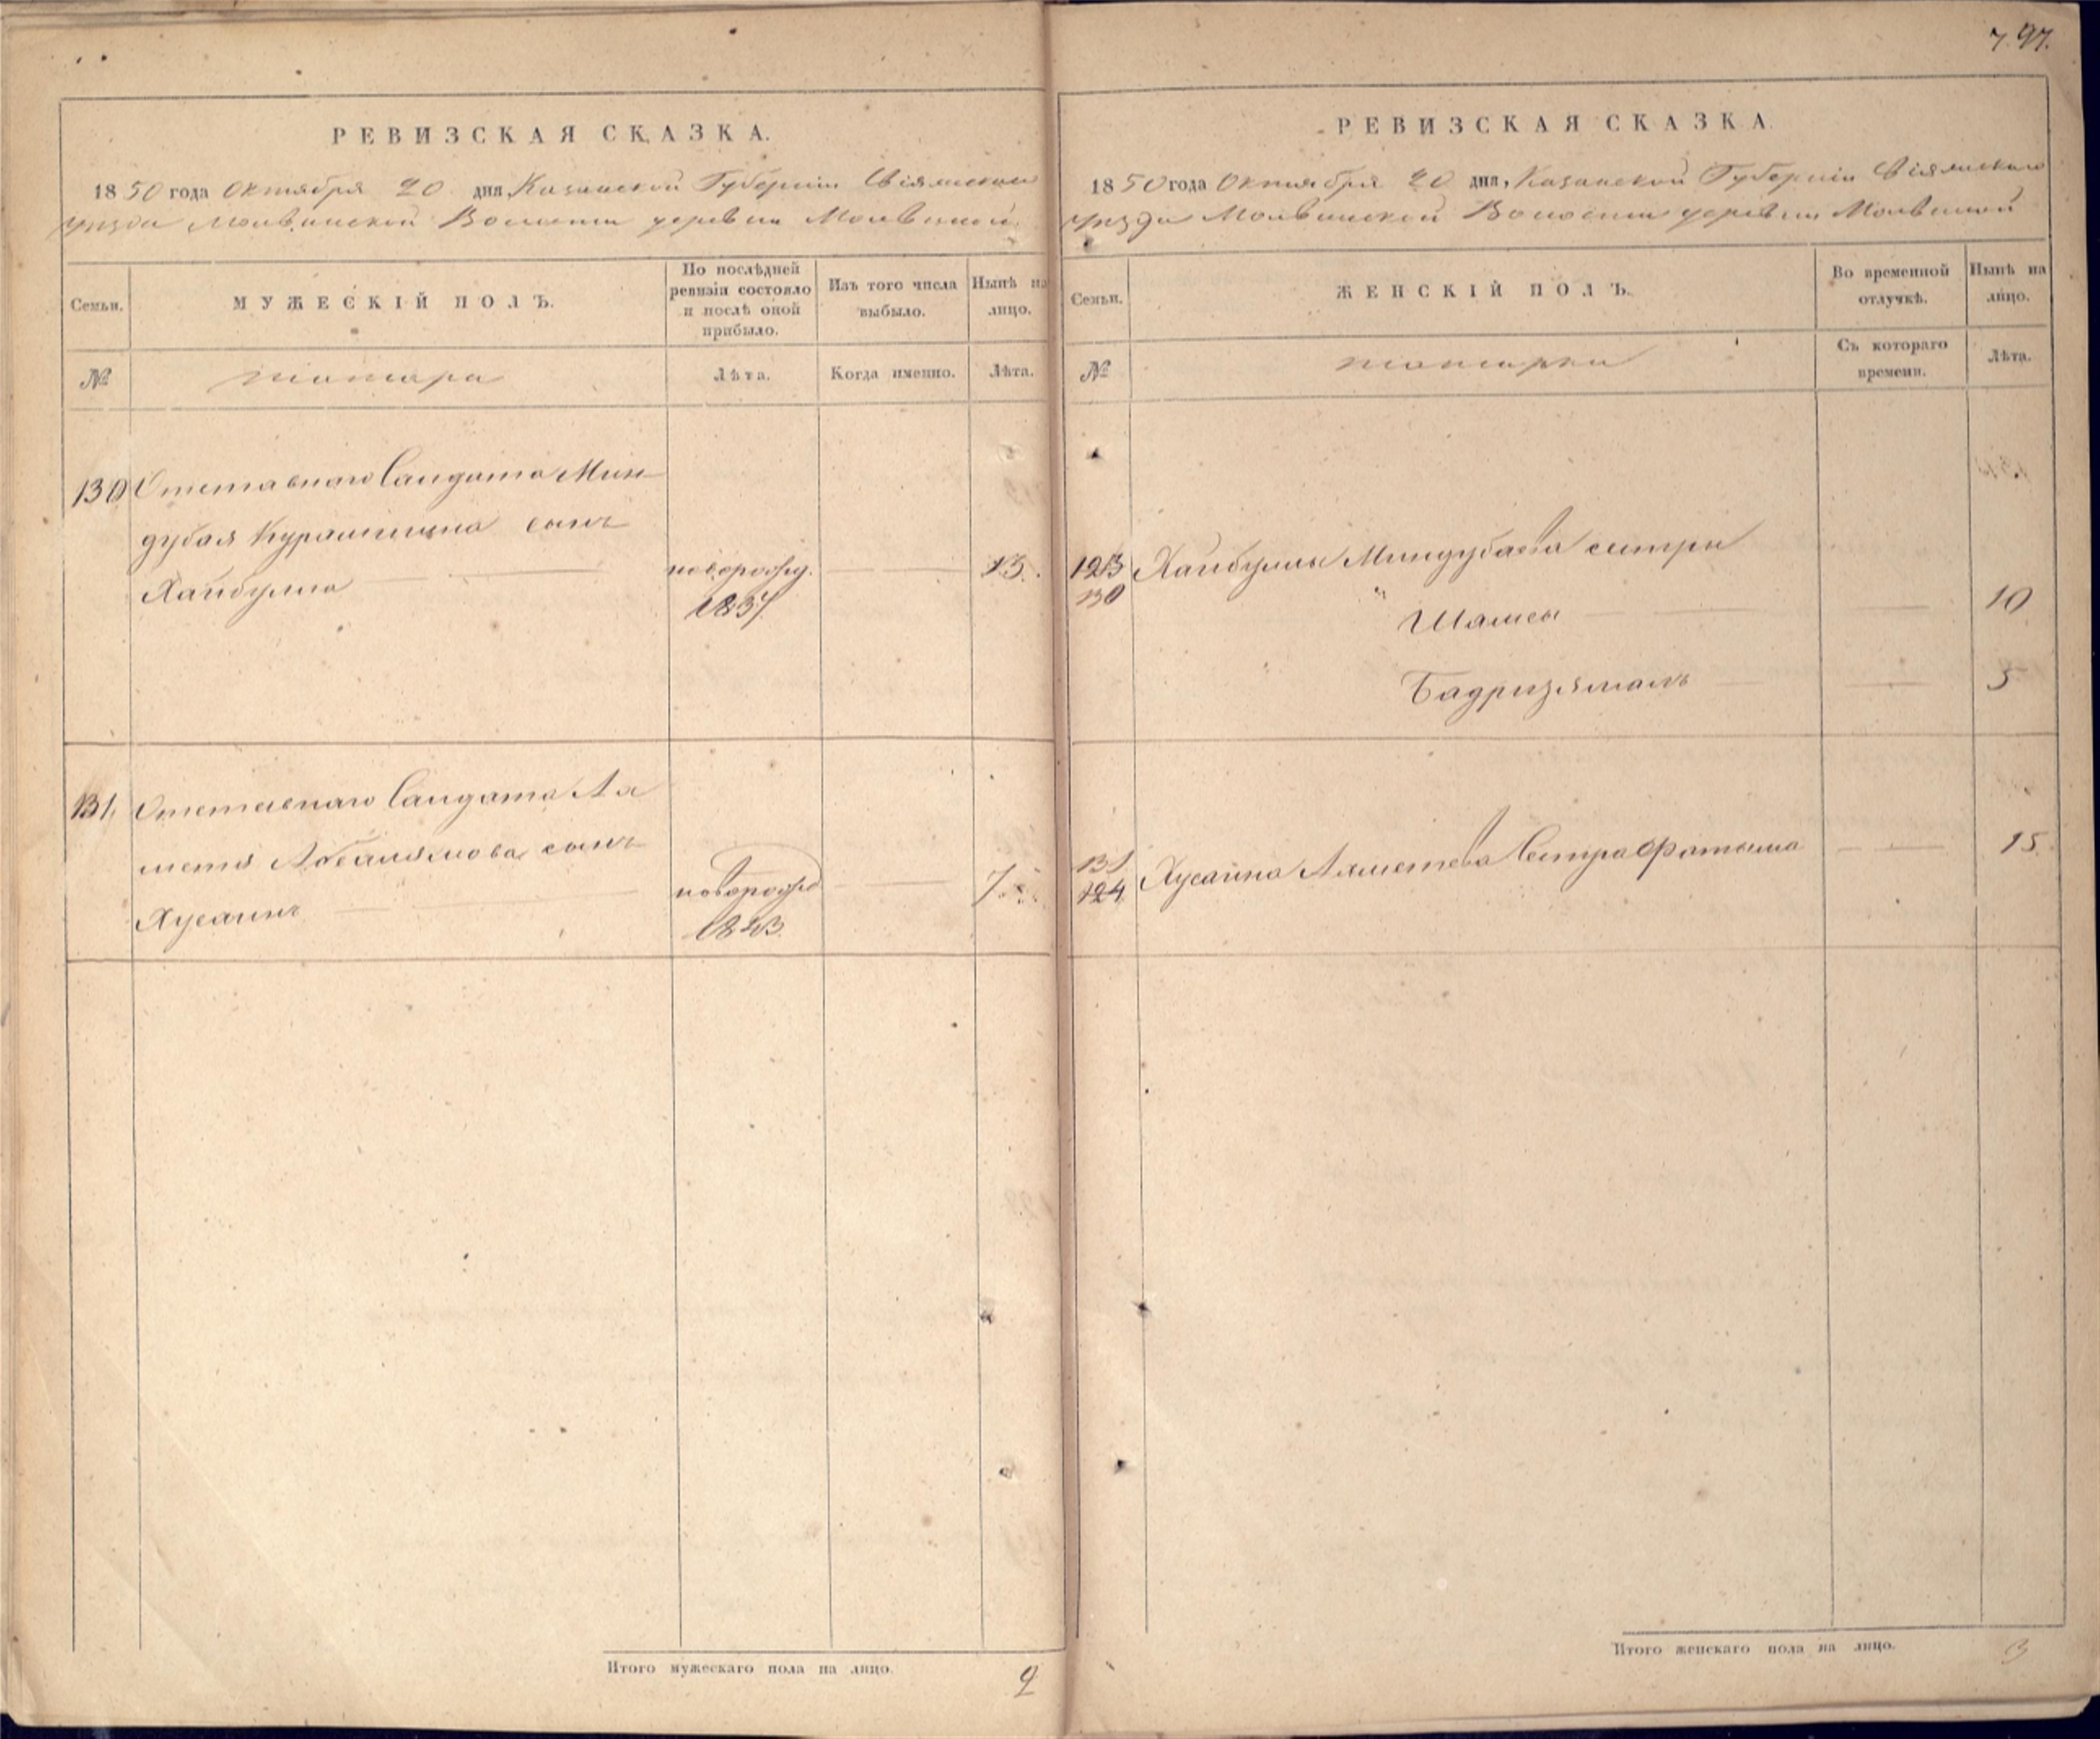 7. 97.
РЕВИЗСКАЯ СКАЗКА.
1850 года Октября 20 дня, Казанской Губерніи Свіяжскаго
уѣзда Молвинской Волости деревни Молвиной
Семьи.
МУЖЕСКІЙ ПОЛЪ.
По послѣдней ревизіи состояло и послѣ оной прибыло.
Изъ того числа выбыло.
Нынѣ на лицо.
№
татара
Лѣта.
Когда именно.
Лѣта.
130 Отставнаго Салдата Мин
дубая Курамшина сынъ
Хайбулла новорожд. 13.
1837
131. Отставнаго Салдата Ах
метя сынъ
Хусаинъ новорожд 7
1843
Итого мужескаго пола на лицо. 2
РЕВИЗСКАЯ СКАЗКА
1850 года Октября 20 дня, Казанской Губерніи Свіяжскаго
уѣзда Молвинской Волости деревни Молвиной
Семьи.
ЖЕНСКІЙ ПОЛЪ.
Во временной отлучкѣ.
Нынѣ на лицо.
№
татарки
Съ котораго времени.
Лѣта.
123 Хайбуллы Миндубаева сестры
130
Шамсы 10
Бадризямалъ 5
131 Хусаина Ахметева Сестра Фатыма 15.
124
Итого женскаго пола на лицо. 3